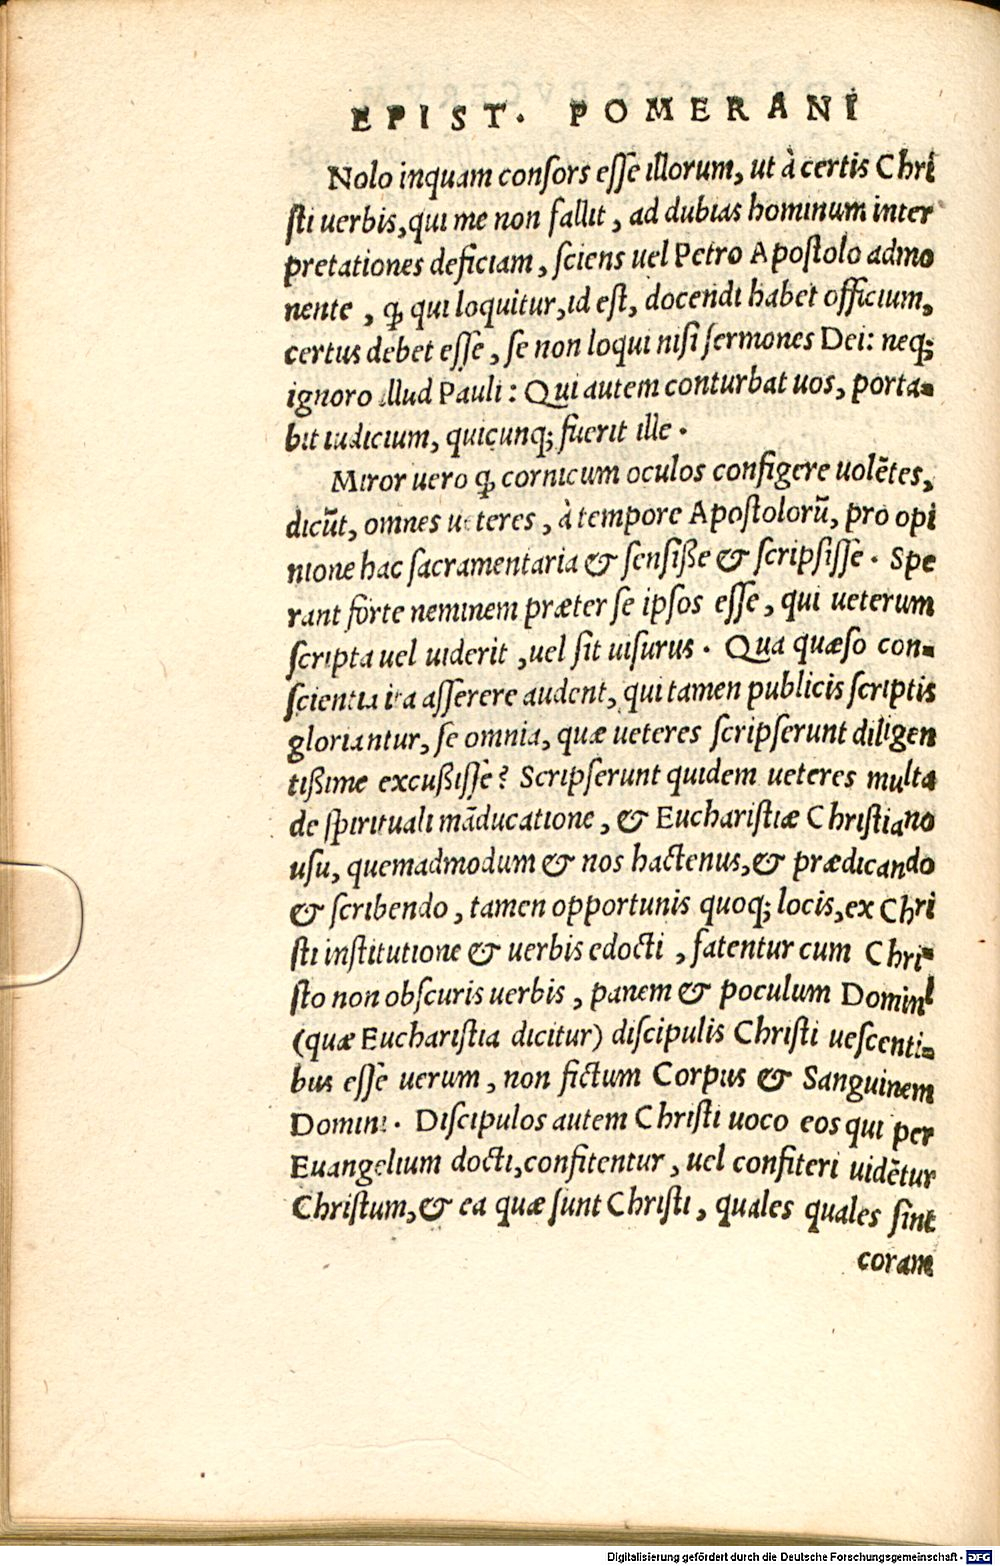 EPIST. POMERANI
Nolo inquam consors esse illorum, ut à certis Chri
sti uerbis, qui me non fallit, ad dubias hominum inter
pretationes deficiam, sciens uel Petro Apostolo admo
nente, ꝙ qui loquitur, id est, docendi habet officium,
certus debet esse, se non loqui nisi sermones Dei: neq;
ignoro illud Pauli: Qui autem conturbat uos, porta-
bit iudicium, quicunq; fuerit ille.
Miror uero ꝙ cornicum oculos configere uolẽtes,
dicũt, omnes ueteres, à tempore Apostolorũ, pro opi
nione hac sacramentaria & sensiße & scripsisse. Spe
rant forte neminem præter se ipsos esse, qui ueterum
scripta uel uiderit, uel sit uisurus. Qua quæso con-
scientia ita asserere audent, qui tamen publicis scriptis
gloriantur, se omnia, quæ ueteres scripserunt diligen
tißime excußisse? Scripserunt quidem ueteres multa
de spirituali mãducatione, & Eucharistiæ Christiano
usu, quemadmodum & nos hactenus, & prædicando
& scribendo, tamen opportunis quoq; locis, ex Chri
sti institutione & uerbis edocti, fatentur cum Chri-
sto non obscuris uerbis, panem & poculum Domini
(quæ Eucharistia dicitur) discipulis Christi uescenti-
bus esse uerum, non fictum Corpus & Sanguinem
Domini. Discipulos autem Christi uoco eos qui per
Euangelium docti, confitentur, uel confiteri uidẽtur
Christum, & ea quæ sunt Christi, quales quales sint
coram
Digitalisierung gefördert durch die Deutsche Forschungsgemeinschaft - DFG